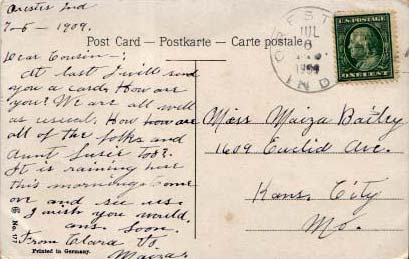 Orestes Ind
7-5-1909.
Dear Cousin-:
At last I will send
you a card. How are
you? We are all well
as usual. How how are
all of the folks and
Aunt Susie too?
It is raining here
this morning. Come
over and see us.
I wish you would.
ans. soon.
From Clara to
Maiza
No. 97
Printed in Germany.
Post Card — Postkarte — Carte postale
ORESTES
JUL
6
1909
IND
U.S. POSTAGE
ONE CENT
Miss Maiza Bailey
1609 Euclid Ave.
Kans. City
Mo.